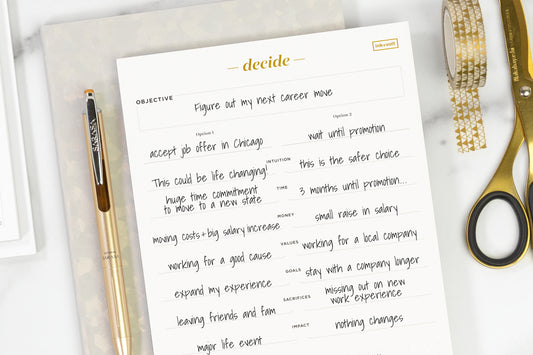 — decide —
OBJECTIVE
Figure out my next career move
Option 1 Option 2
accept job offer in Chicago wait until promotion
This could be life changing! INTUITION this is the safer choice
huge time commitment
to move to a new state TIME 3 months until promotion...
moving costs + big salary increase MONEY small raise in salary
working for a good cause VALUES working for a local company
expand my experience GOALS stay with a company longer
leaving friends and fam SACRIFICES missing out on new
work experience
major life event IMPACT nothing changes
SARASA